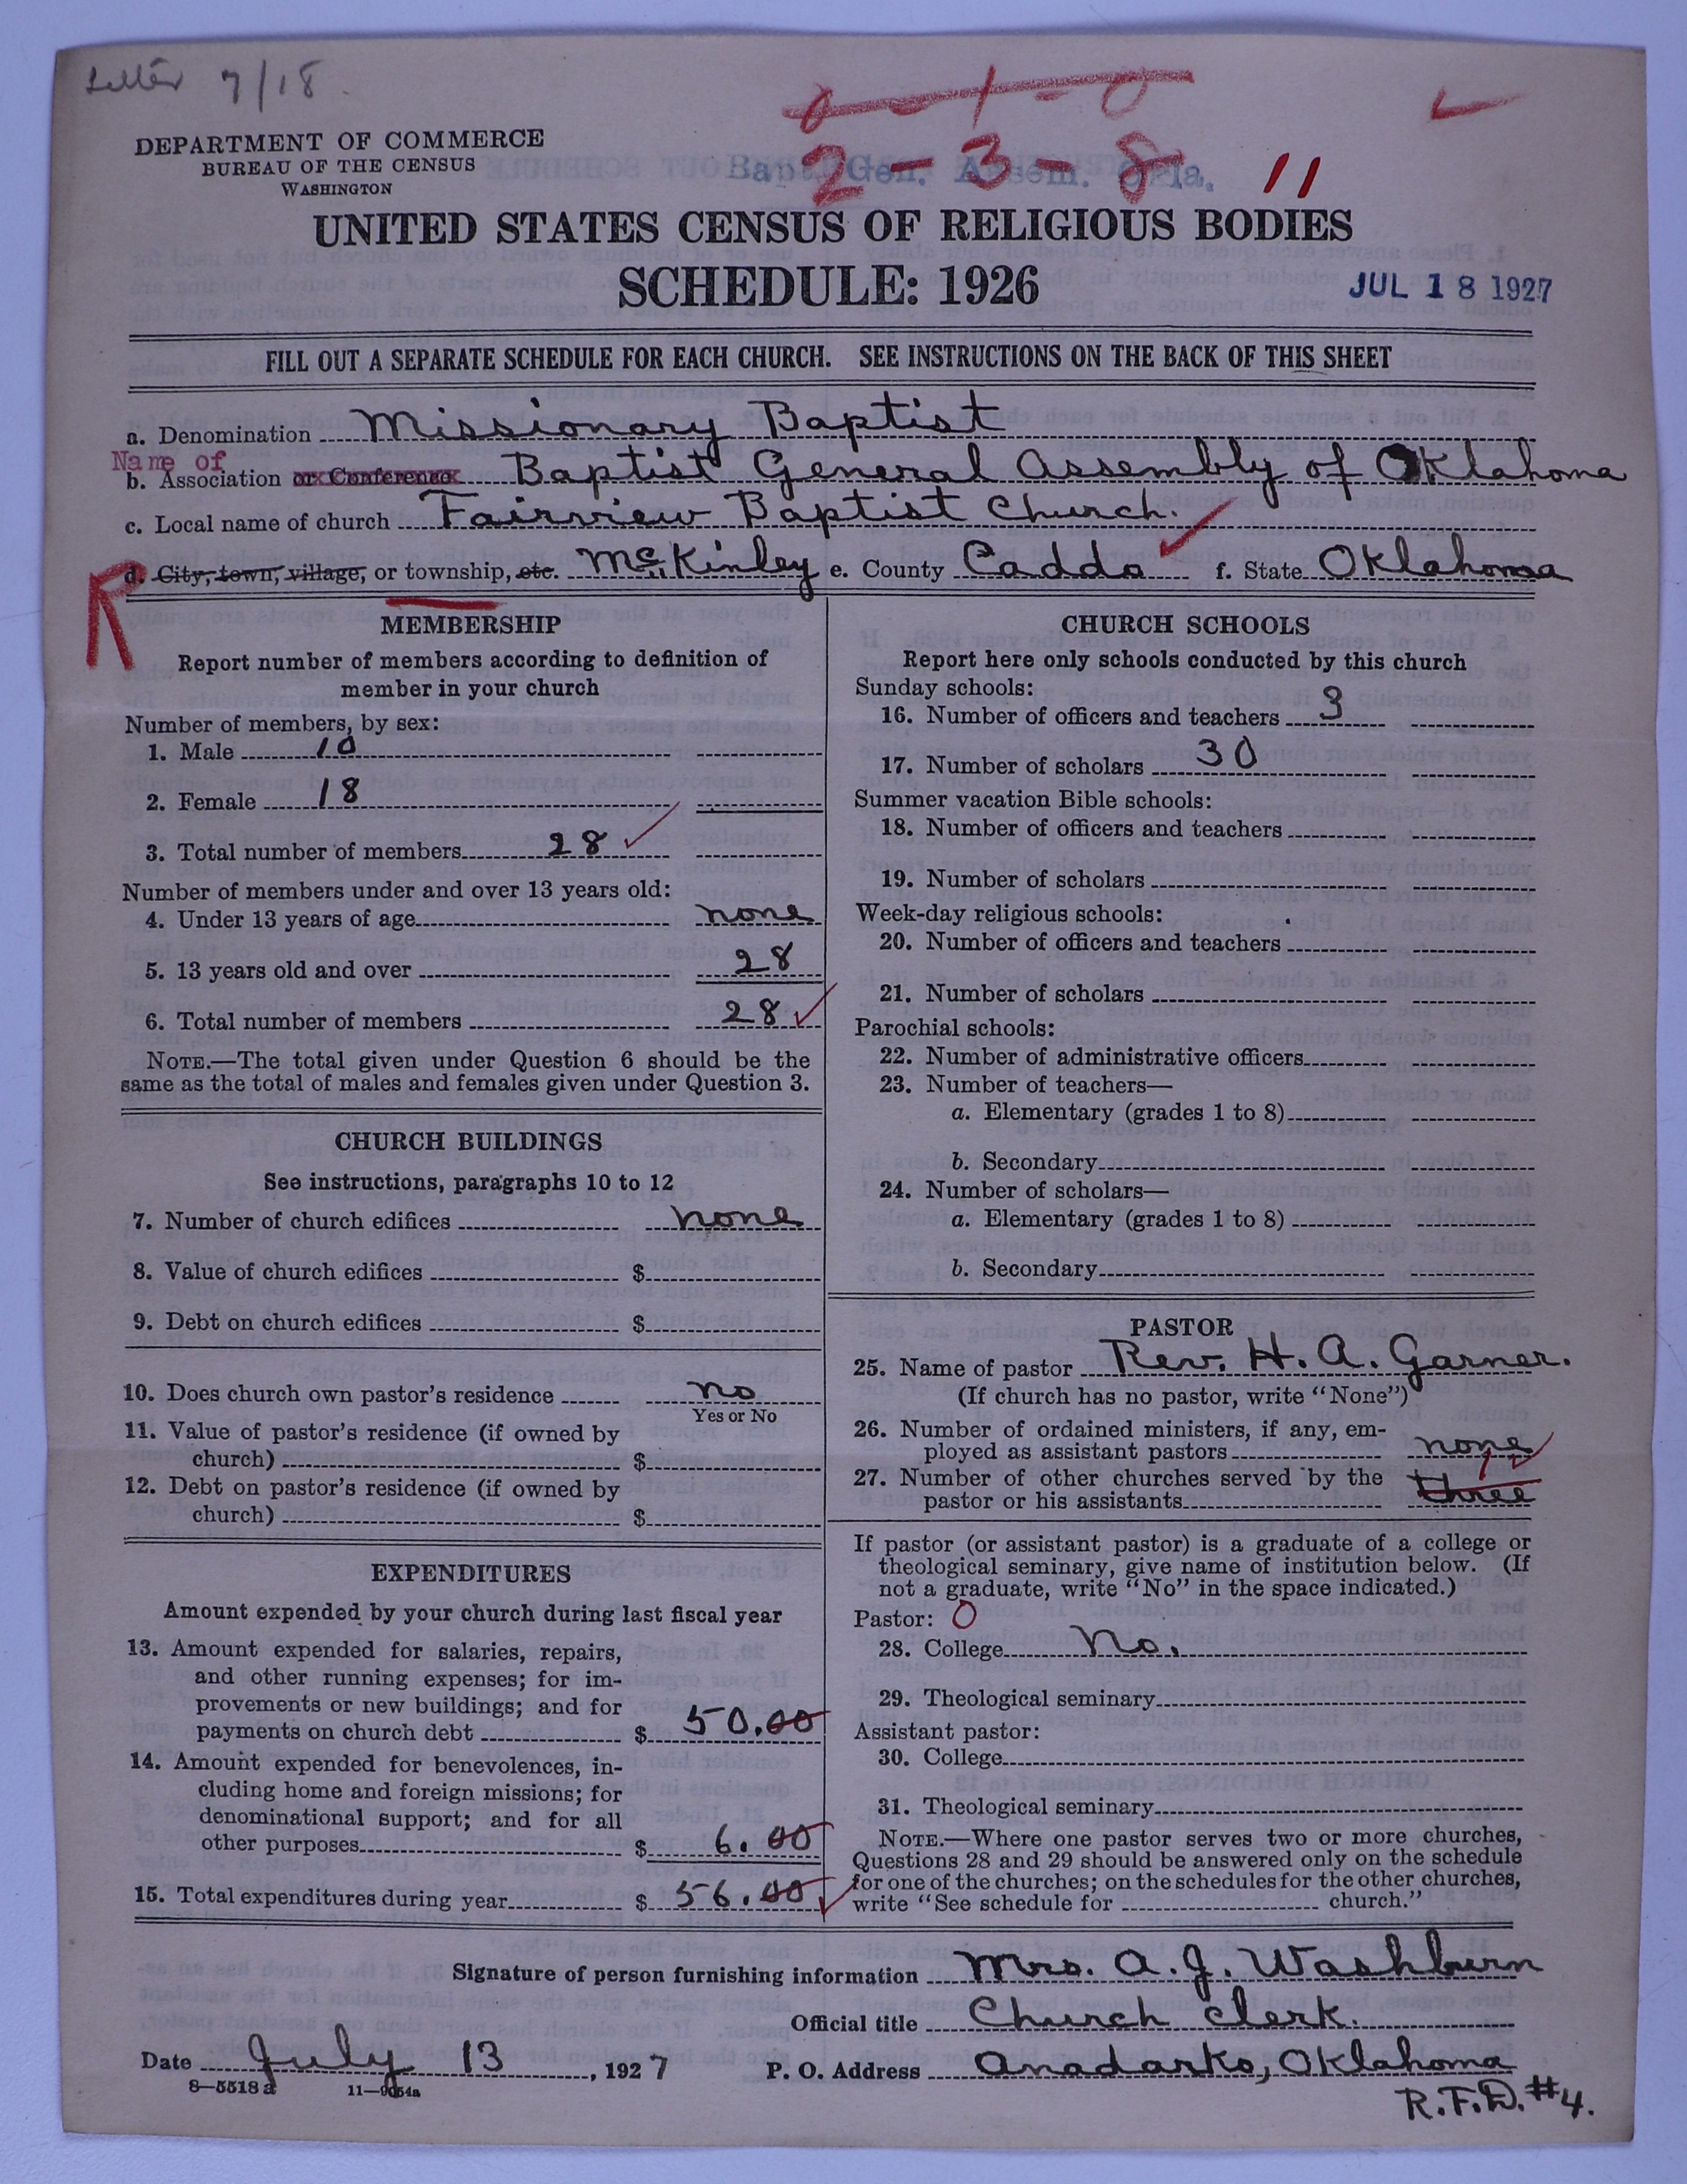 Letter 7/18.
0 - 1 - 0
2 - 3 - 8 11
DEPARTMENT OF COMMERCE
BUREAU OF THE CENSUS
WASHINGTON
Bapt. Gen. Assem. Okla.
UNITED STATES CENSUS OF RELIGIOUS BODIES
SCHEDULE: 1926
JUL 18 1927
FILL OUT A SEPARATE SCHEDULE FOR EACH CHURCH. SEE INSTRUCTIONS ON THE BACK OF THIS SHEET
a. Denomination Missionary Baptist
Name of
b. Association or Conference Baptist General Assembly of Oklahoma
c. Local name of church Fairview Baptist Church.
R
d. City, town, village, or township, etc. McKinley e. County Caddo f. State Oklahoma
MEMBERSHIP
Report number of members according to definition of
member in your church
Number of members, by sex:
1. Male 10
2. Female 18
3. Total number of members 28
Number of members under and over 13 years old:
4. Under 13 years of age none
5. 13 years old and over 28
6. Total number of members 28
NOTE.—The total given under Question 6 should be the
same as the total of males and females given under Question 3.
CHURCH BUILDINGS
See instructions, paragraphs 10 to 12
7. Number of church edifices none
8. Value of church edifices $
9. Debt on church edifices $
10. Does church own pastor's residence no
Yes or No
11. Value of pastor's residence (if owned by
church) $
12. Debt on pastor's residence (if owned by
church) $
EXPENDITURES
Amount expended by your church during last fiscal year
13. Amount expended for salaries, repairs,
and other running expenses; for im-
provements or new buildings; and for
payments on church debt $ 50.00
14. Amount expended for benevolences, in-
cluding home and foreign missions; for
denominational support; and for all
other purposes $ 6.00
15. Total expenditures during year $ 56.00
CHURCH SCHOOLS
Report here only schools conducted by this church
Sunday schools:
16. Number of officers and teachers 3
17. Number of scholars 30
Summer vacation Bible schools:
18. Number of officers and teachers
19. Number of scholars
Week-day religious schools:
20. Number of officers and teachers
21. Number of scholars
Parochial schools:
22. Number of administrative officers
23. Number of teachers—
a. Elementary (grades 1 to 8)
b. Secondary
24. Number of scholars—
a. Elementary (grades 1 to 8)
b. Secondary
PASTOR
25. Name of pastor Rev. H. A. Garner.
(If church has no pastor, write "None")
26. Number of ordained ministers, if any, em-
ployed as assistant pastors none
27. Number of other churches served by the
pastor or his assistants three
If pastor (or assistant pastor) is a graduate of a college or
theological seminary, give name of institution below. (If
not a graduate, write "No" in the space indicated.)
Pastor: 0
28. College No.
29. Theological seminary
Assistant pastor:
30. College
31. Theological seminary
NOTE.—Where one pastor serves two or more churches,
Questions 28 and 29 should be answered only on the schedule
for one of the churches; on the schedules for the other churches,
write "See schedule for church."
Signature of person furnishing information Mrs. A. J. Washburn
Official title Church Clerk.
Date July 13, 1927 P. O. Address Anadarko, Oklahoma
R.F.D. #4.
8—5518 a 11—9054a